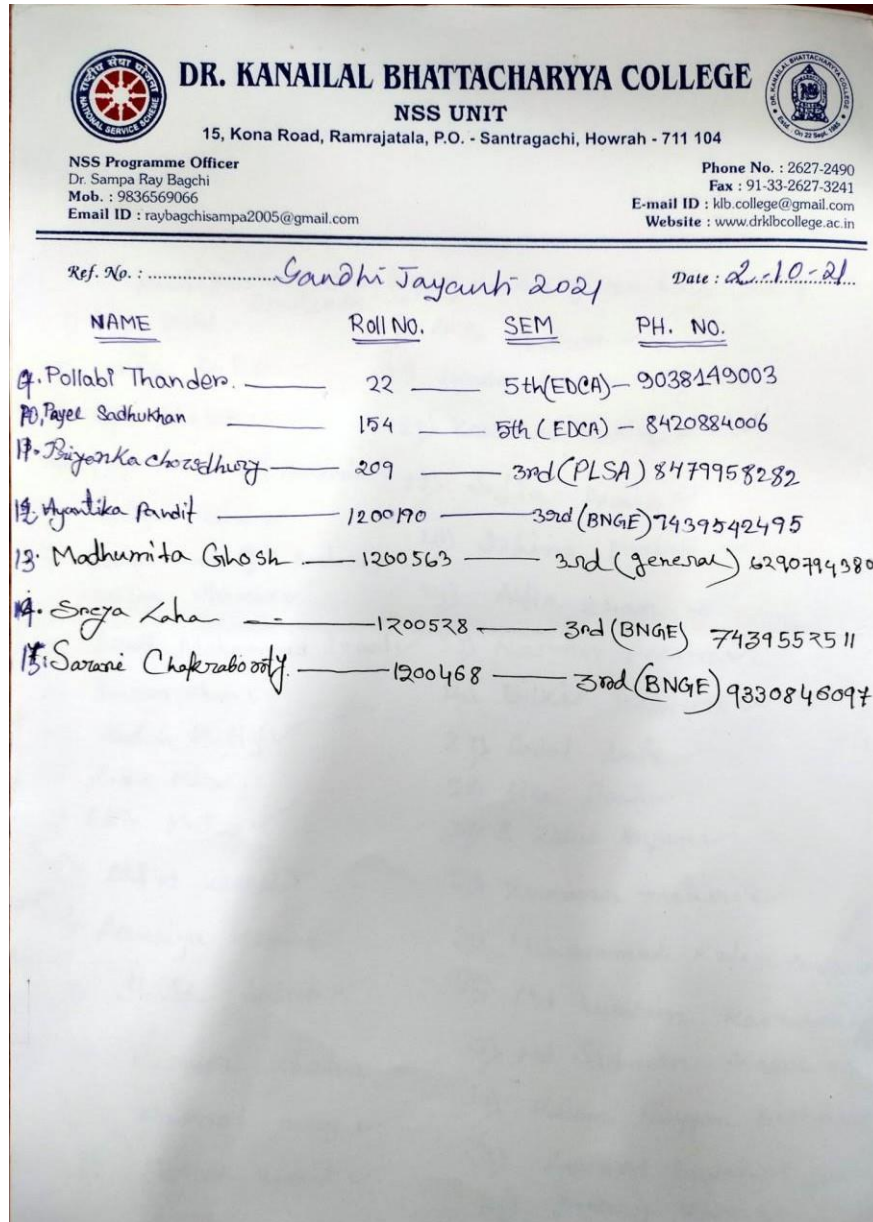 DR. KANAILAL BHATTACHARYYA COLLEGE
NSS UNIT
15, Kona Road, Ramrajatala, P.O. - Santragachi, Howrah - 711 104
राष्ट्रीय सेवा योजना
NATIONAL SERVICE SCHEME
DR. KANAILAL BHATTACHARYYA COLLEGE
Estd. On 22 Sept. 1985
NSS Programme Officer
Dr. Sampa Ray Bagchi
Mob. : 9836569066
Email ID : raybagchisampa2005@gmail.com
Phone No. : 2627-2490
Fax : 91-33-2627-3241
E-mail ID : klb.college@gmail.com
Website : www.drklbcollege.ac.in
Ref. No. : Gandhi Jayanti 2021 Date : 2-10-21
NAME Roll No. SEM PH. NO.
9. Pollabi Thander. 22 5th(EDCA)- 9038149003
10. Payel Sadhukhan 154 5th (EDCA) - 8420884006
11. Priyanka Chowdhury 209 3rd (PLSA) 8479958282
12. Ayantika Pandit 1200190 3rd (BNGE) 7439542495
13. Madhumita Ghosh 1200563 3rd (general) 6290794380
14. Sreya Laha 1200528 3rd (BNGE) 7439552511
15. Sarani Chakraborty. 1200468 3rd (BNGE) 9330846097